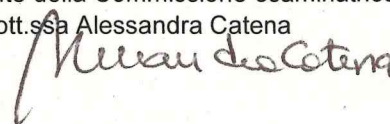 te della Commissione esaminatrice
ott.ssa Alessandra Catena
Alessandra Catena